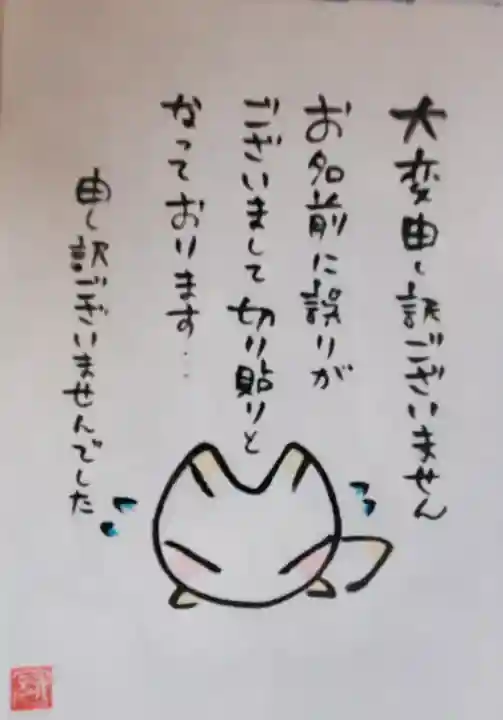 大変申し訳ございません
お名前に誤りが
ございまして切り貼りと
なっております…
申し訳ございませんでした